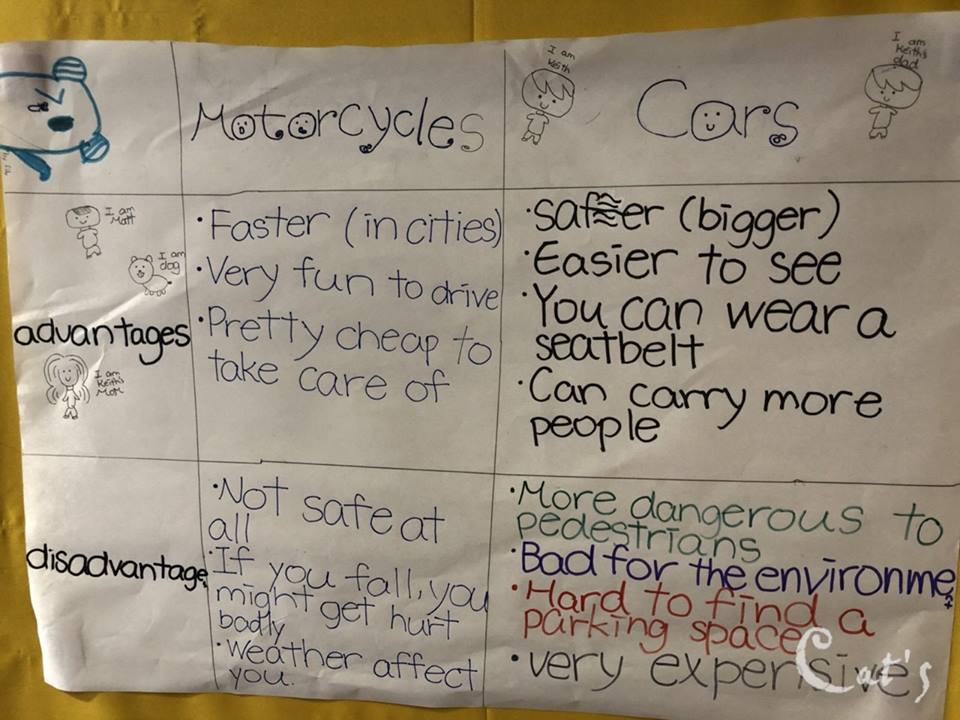 Motorcycles
I am
Keith
Cars
I am
Keith's
dad
I am
Matt
I am
dog
advantages
I am
Keith's
Mom
• Faster (in cities)
• Very fun to drive
• Pretty cheap to
take care of
• safer (bigger)
• Easier to see
• You can wear a
seatbelt
• Can carry more
people
disadvantage
• Not safe at
all
• If you fall, you
might get hurt
badly
• weather affect
you.
• More dangerous to
pedestrians
• Bad for the environme
• Hard to find a
parking space
• very expensive
Cat's